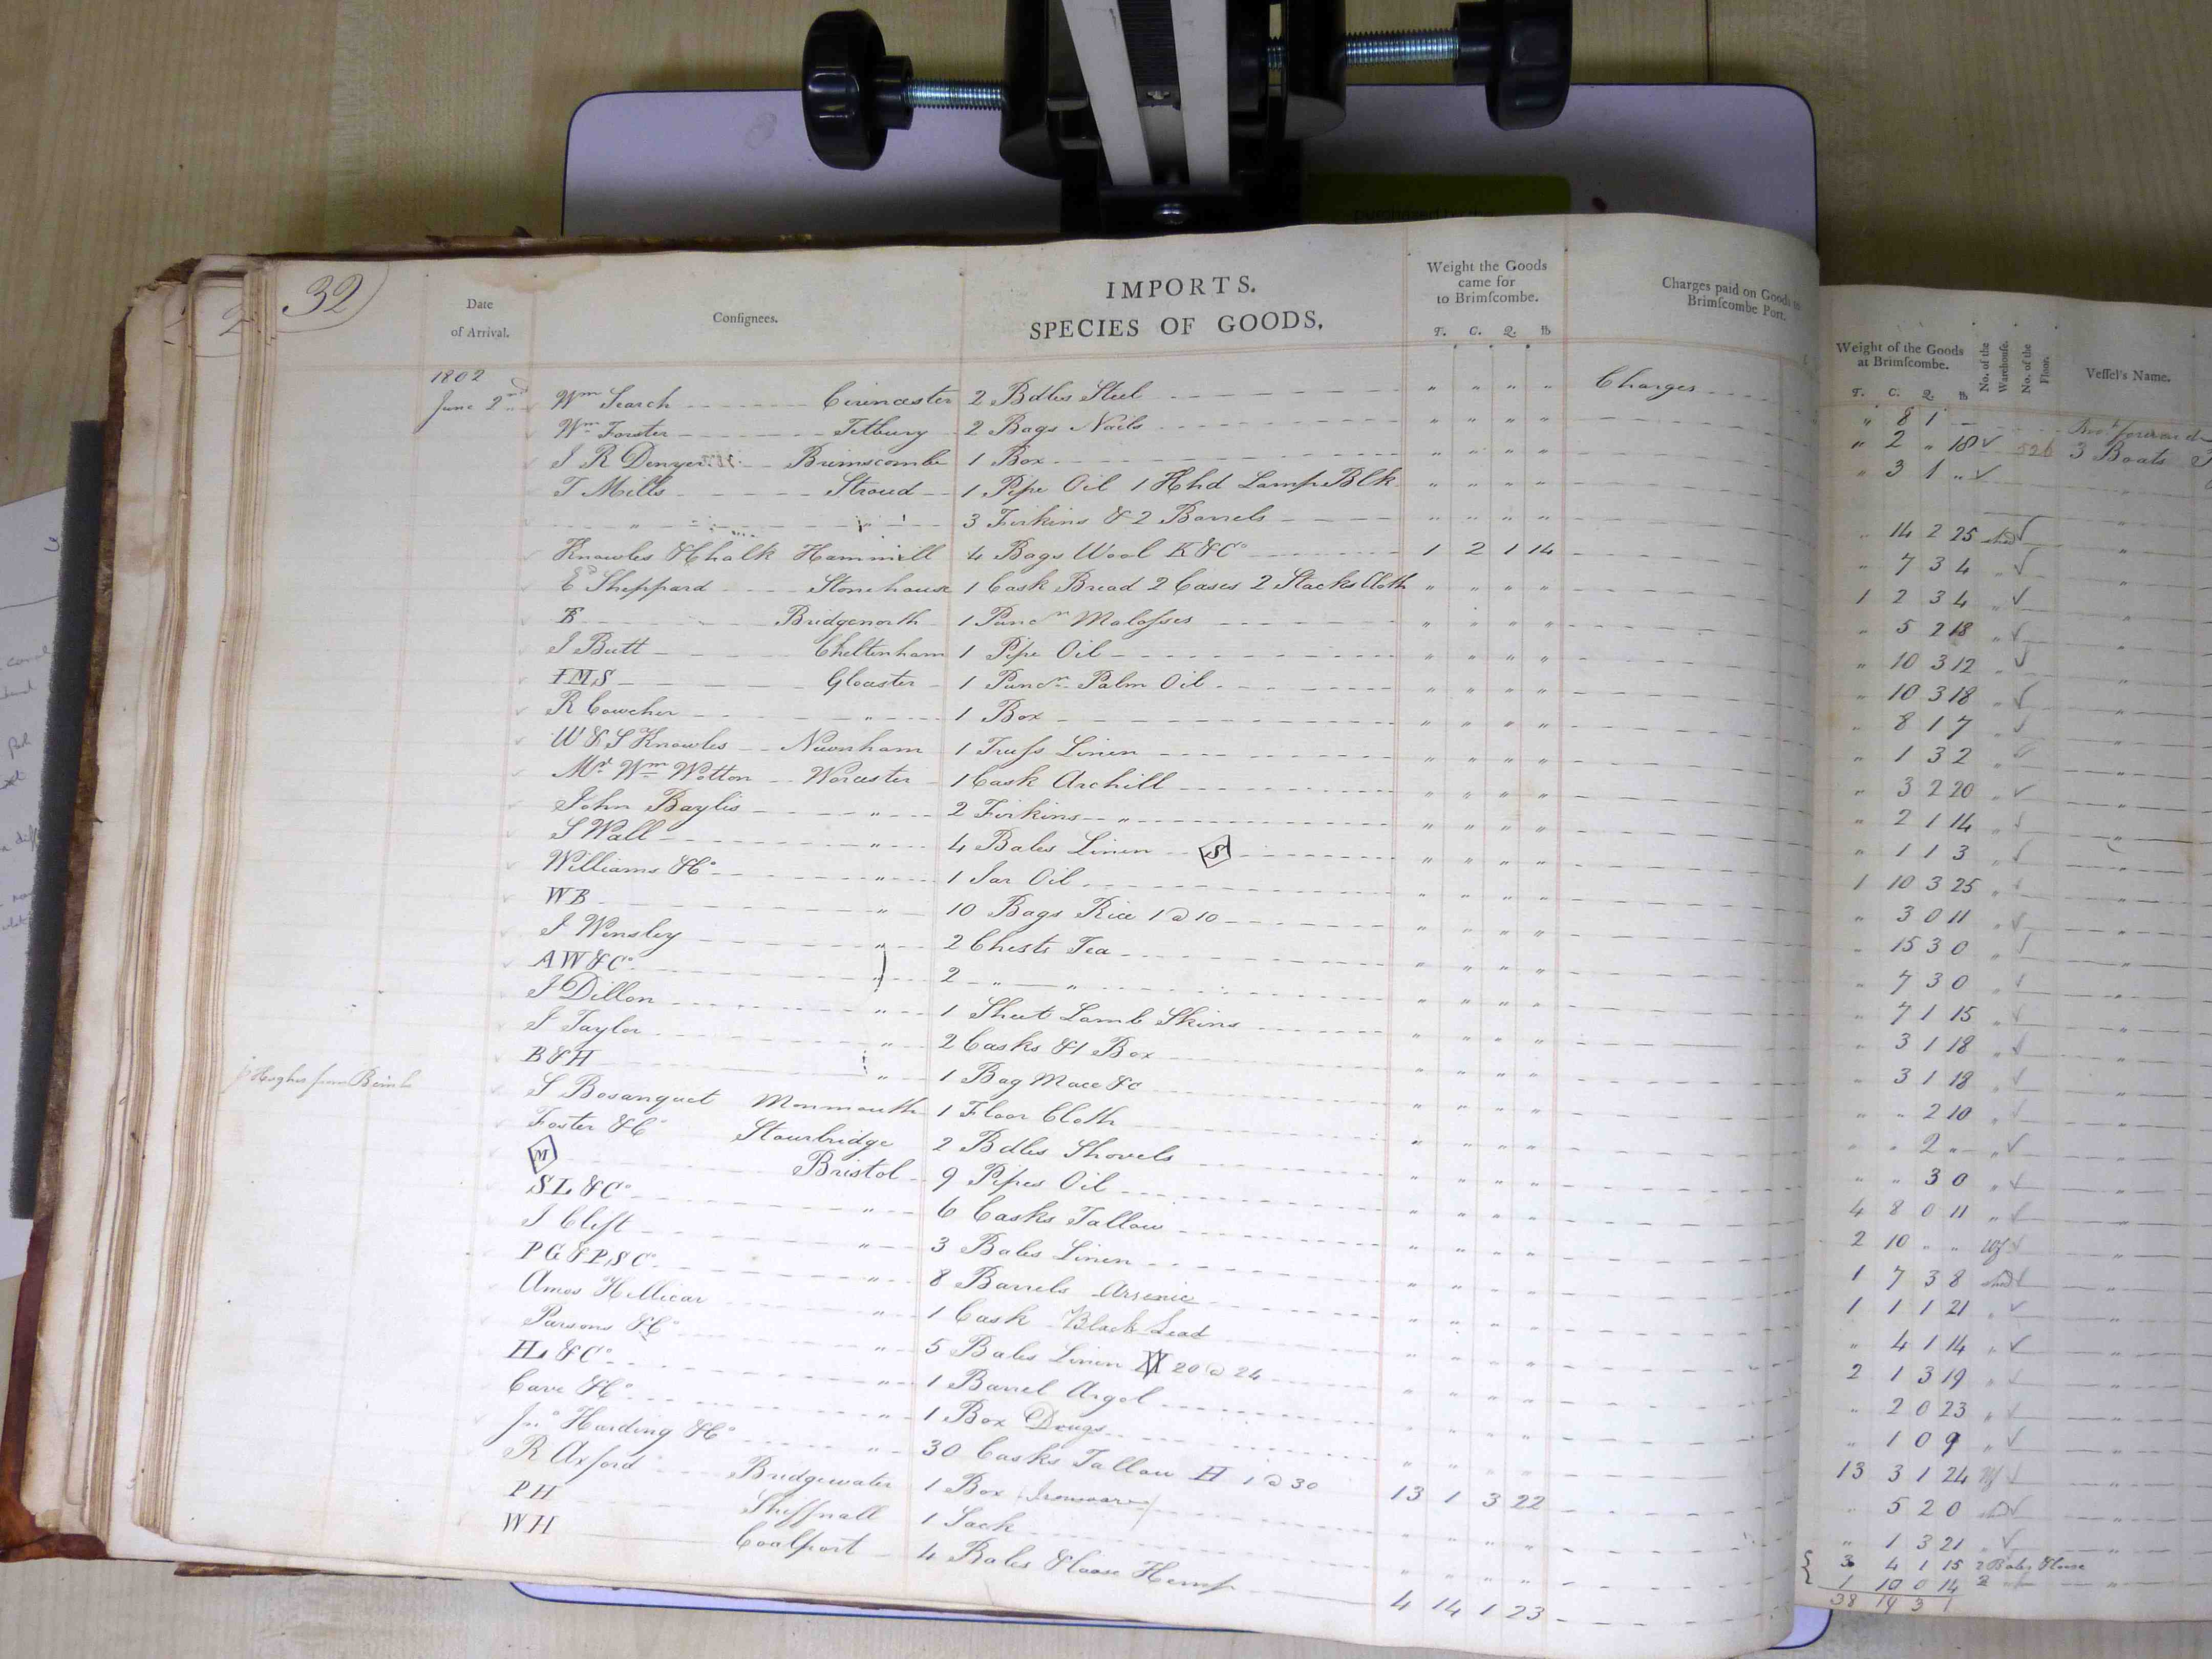 32
IMPORTS.
SPECIES OF GOODS.
Date of Arrival.
Consignees.
Weight the Goods came for to Brimscombe.
T. C. Q. lb
Charges paid on Goods to Brimscombe Port.
Weight of the Goods at Brimscombe.
T. C. Q. lb
No. of the Warehouse.
No. of the Floor.
Vessel's Name.
1802
June 2nd Wm Search Cirencester 2 Bdles Steel " " " " Charges " 8 1 -
Wm Forster Tetbury 2 Bags Nails " " " " " 2 " 18 ✓ 526 3 Boats
J R Denyer Brimscombe 1 Box " " " " " 3 1 " ✓
T Mills Stroud 1 Pipe Oil 1 Hhd Lamp Blk " " " "
" " 3 Firkins & 2 Barrels " " " " " 14 2 25 shed ✓
Knowles & Chalk Hammill 4 Bags Wool K&Co 1 2 1 14 " 7 3 4 " ✓
Ed Sheppard Stonehouse 1 Cask Bread 2 Cases 2 Stacks Cloth " " " " 1 2 3 4 " ✓
B Bridgenorth 1 Puncn Molosses " " " " " 5 2 18 " ✓
J Butt Cheltenham 1 Pipe Oil " " " " " 10 3 12 " ✓
IMS Glocester 1 Puncn Palm Oil " " " " " 10 3 18 " ✓
R Cowcher " 1 Box " " " " " 8 1 7 " ✓
W & S Knowles Newnham 1 Truss Linen " " " " " 1 3 2 " ✓
Mr Wm Wotton Worcester 1 Cask Archill " " " " " 3 2 20 " ✓
John Baylis " 2 Firkins " " " " " " 2 1 14 " ✓
S Wall " 4 Bales Linen S " " " " " 1 1 3 " ✓
Williams & Co " 1 Jar Oil " " " " 1 10 3 25 " ✓
WB " 10 Bags Rice 1 @ 10 " " " " " 3 0 11 " ✓
J Wensley " 2 Chests Tea " " " " " 15 3 0 " ✓
AW&Co " 2 " " " " " " " 7 3 0 " ✓
J Dillon " 1 Sheet Lamb Skins " " " " " 7 1 15 " ✓
J Taylor " 2 Casks & 1 Box " " " " " 3 1 18 " ✓
B&H " 1 Bag Mace &c " " " " " 3 1 18 " ✓
S Bosanquet Monmouth 1 Floor Cloth " " " " " " 2 10 " ✓
Foster & Co Stourbridge 2 Bdles Shovels " " " " " " 2 " " ✓
M Bristol 9 Pipes Oil " " " " " " 3 0 " ✓
SL&Co " 6 Casks Tallow " " " " 4 8 0 11 " ✓
J Clift " 3 Bales Linen " " " " 2 10 " " Wf ✓
PG&PSCo " 8 Barrels Arsenic " " " " 1 7 3 8 shed ✓
Amos Hillicar " 1 Cask Black Lead " " " " 1 1 1 21 " ✓
Parsons & Co " 5 Bales Linen 20 @ 24 " " " " " 4 1 14 " ✓
HL&Co " 1 Barrel Argol " " " " 2 1 3 19 " ✓
Cave & Co " 1 Box Drugs " " " " " 2 0 23 " ✓
Jno Harding & Co " 30 Casks Tallow H 1 @ 30 13 1 3 22 " 1 0 9 " ✓
R Axford Bridgewater 1 Box Ironware " " " " 13 3 1 24 Wf ✓
PH Sheffnall 1 Sack " " " " " 5 2 0 shed ✓
WH Coalport 4 Bales & loose Hemp 4 14 1 23 " 1 3 21 " ✓
3 4 1 15 2 Bales & loose
1 10 0 14 2
38 14 3 1